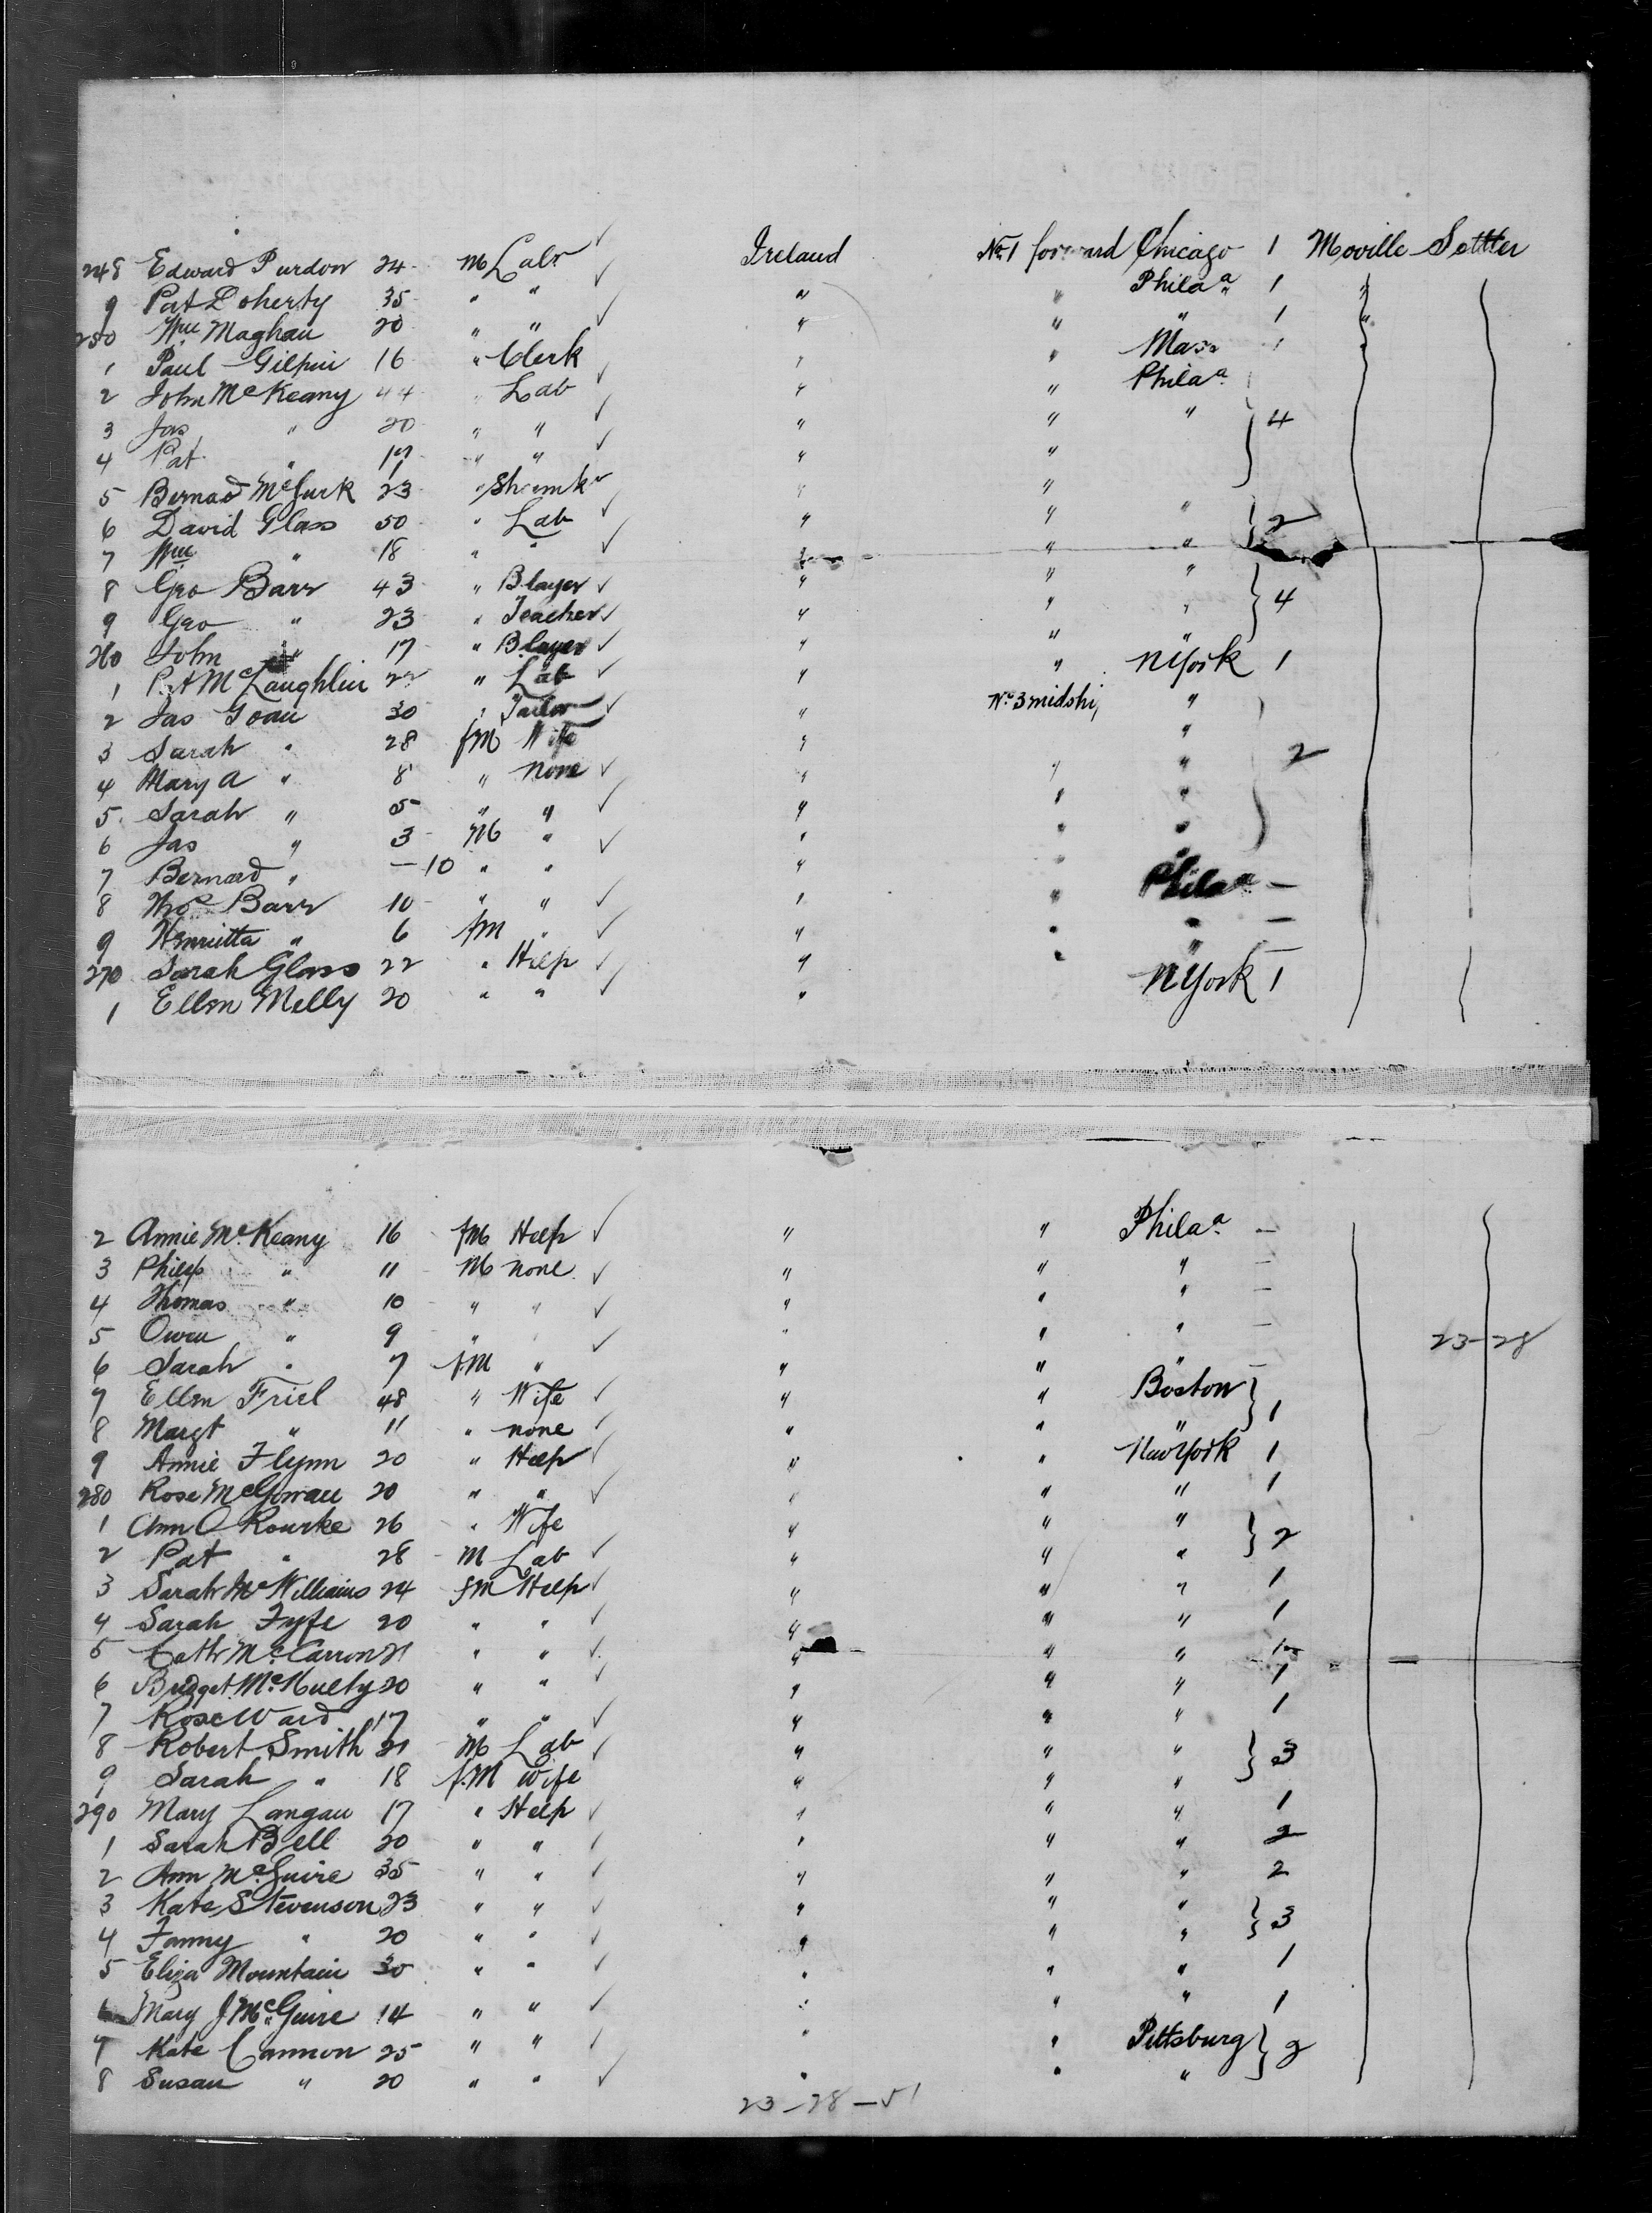 248 Edward Purdon 24 M Labr Ireland No 1 forward Chicago 1 Moville Settler
9 Pat Doherty 35 " " " " Phila a 1 "
250 Wm Maghan 20 " " " " " 1 "
1 Paul Gilpin 16 " Clerk " " Mass 1 "
2 John McKeany 44 " Lab " " Phila a
3 Jas " 20 " " " " " } 4
4 Pat " 17 " " " "
5 Bernad McGurk 23 " Shoemkr " "
6 David Glass 50 " Lab " " " } 2
7 Wm " 18 " " " " "
8 Geo Barr 43 " Blayer " " " } 4
9 Geo " 23 " Teacher " " "
260 John " 17 " Blayer " " "
1 Pat McLaughlin 22 " Lab " " NYork 1
2 Jas Toan 30 " Tailor " No 3 midshi "
3 Sarah " 28 fM Wife " "
4 Mary A " 8 " none " " " 2
5 Sarah " 5 " " " " "
6 Jas " 3 M " " " "
7 Bernard " - 10 " " " " "
8 Thos Barr 10 " " " " Phila a -
9 Henrietta " 6 fM " " " " -
270 Sarah Glass 22 " Help " " " -
1 Ellen Melly 20 " " " NYork 1
2 Annie McKeany 16 fM Help " " Phila a -
3 Philip " 11 M none " " " -
4 Thomas " 10 " " " " " -
5 Owen " 9 " " " " " - 23-28
6 Sarah " 7 fM " " " " -
7 Ellen Friel 48 " Wife " " Boston } 1
8 Margt " 11 " none " " "
9 Annie Flynn 20 " Help " " New York 1
280 Rose McGowan 20 " " " " " 1
1 Ann O Rourke 26 " Wife " " " } 2
2 Pat " 28 M Lab " " "
3 Sarah McWilliams 24 fM Help " " " 1
4 Sarah Fyfe 20 " " " " " 1
5 Cath McCarron 21 " " " " " 1
6 Bridget McNulty 20 " " " " " 1
7 Rose Ward 17 " " " " " 1
8 Robert Smith 21 M Lab " " " } 3
9 Sarah " 18 f.M Wife " " "
290 Mary Langan 17 " Help " " " 1
1 Sarah Bell 20 " " " " " 2
2 Ann McGuire 35 " " " " " 2
3 Kate Stevenson 23 " " " " " } 3
4 Fanny " 20 " " " " "
5 Eliza Mountain 30 " " " " " 1
6 Mary J McGuire 14 " " " " " 1
7 Kate Cannon 25 " " " " Pittsburg } 2
8 Susan " 20 " " " " "
23-28-51